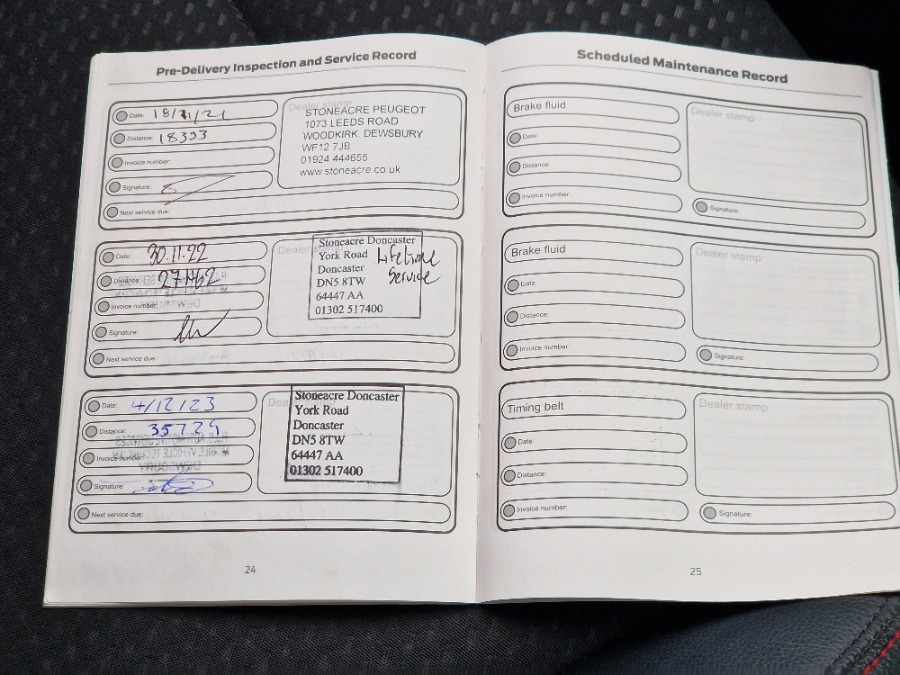 Pre-Delivery Inspection and Service Record
Date: 18/11/21
Distance: 18393
Invoice number:
Signature:
Next service due:
Dealer stamp
STONEACRE PEUGEOT
1073 LEEDS ROAD
WOODKIRK. DEWSBURY
WF12 7JB
01924 444655
www.stoneacre.co.uk
Date: 30.11.22
Distance:
Invoice number:
Signature:
Next service due:
Dealer
Stoneacre Doncaster
York Road
Doncaster
DN5 8TW
64447 AA
01302 517400
Lifetime
Service
Date: 4/12/23
Distance: 35724
Invoice number:
Signature:
Next service due:
Stoneacre Doncaster
York Road
Doncaster
DN5 8TW
64447 AA
01302 517400
24
Scheduled Maintenance Record
Brake fluid
Date:
Distance:
Invoice number:
Dealer stamp
Signature:
Brake fluid
Date
Distance:
Invoice number:
Dealer stamp
Signature:
Timing belt
Date
Distance:
Invoice number:
Dealer stamp
Signature:
25